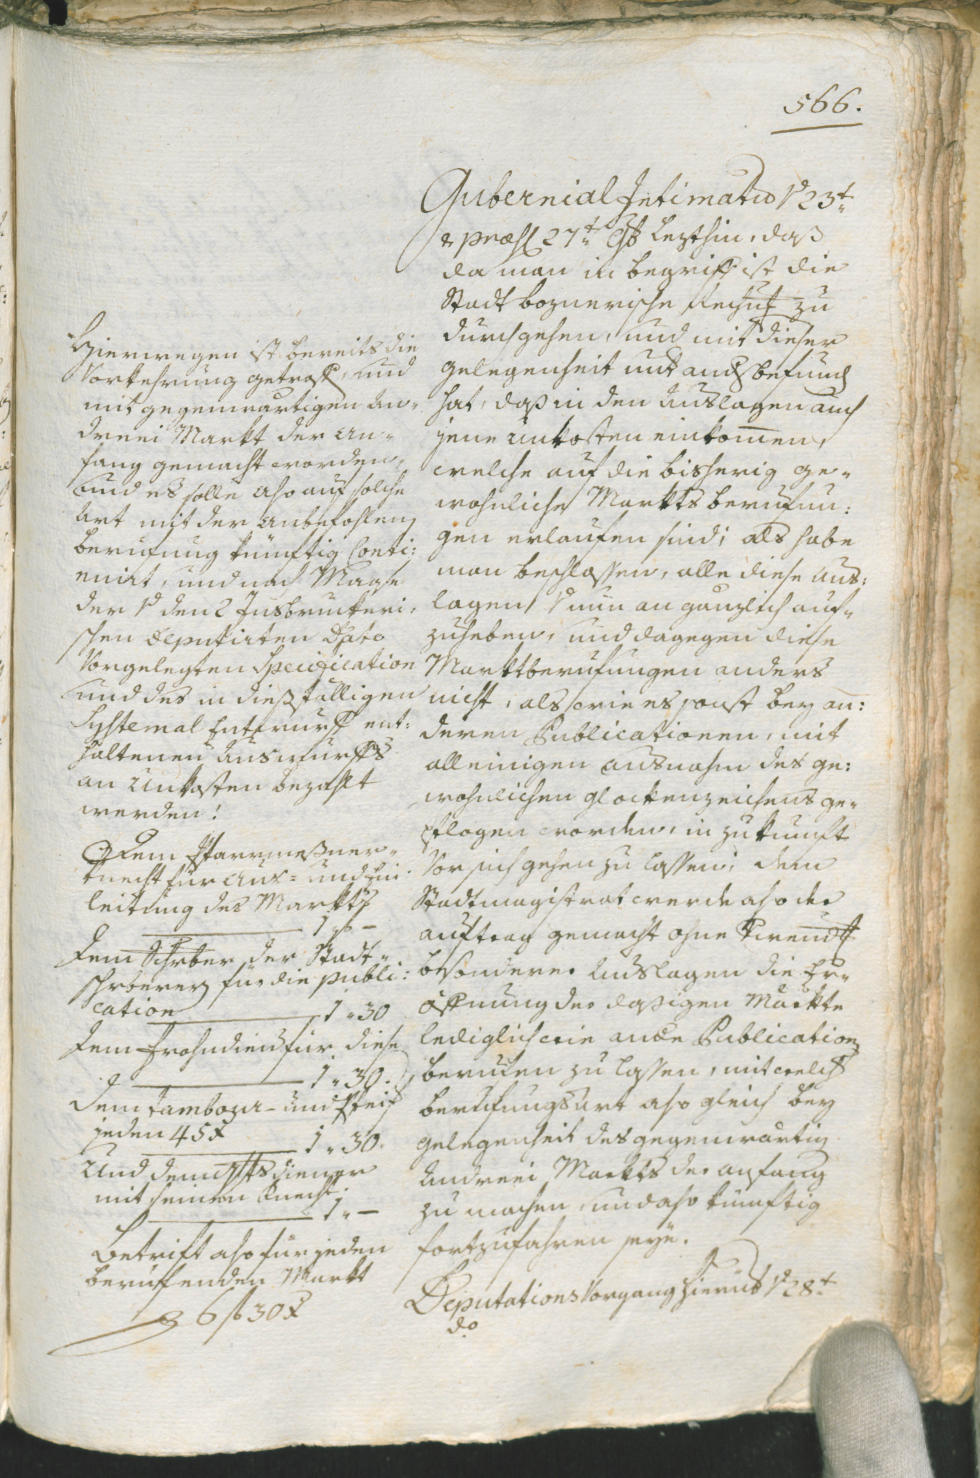 566.
Gubernial Intimatio v 23t.
& præs 27t. 9b lezthin, daß
da man in begriff ist die
Stadt boznerische Rechnung zu
durchgehen, und mit dieser
gelegenheit und auch befund
hat, daß in den Auslagen auch
jene Unkosten einkomen,
welche auf die bisherig ge-
wohnliche Markts beruffun:
gen erlaufen sind; als habe
man beschlossen, alle diese Aus:
lagen v nun an gänzlich auf-
zuheben, und dagegen diese
Marktberufungen anders
nicht, als wie es sonst bey an:
deren Publicationen, mit
alleinigen ausnahm des ge:
wohnlichen glockenzeichens ge-
pflogen worden, in zukunft
Vor sich gehen zu lassen; dem
Stadtmagistrat werde also der
auftrag gemacht ohne
besonderer Auslagen die Er-
öffnung der dasigen Märkte
lediglich wie andere Publicationen
berufen zu lassen, mit welch
berufungsart also gleich bey
gelegenheit des gegenwärtig
Andreei Markts der anfang
zu machen, und also künftig
fortzufahren seye.
Deputations Vorgang hierüber v 28t
do
Hierwegen ist bereits die
Vorkehrung getroffen, und
mit gegenwärtigen An-
dreei Markt der an-
fang gemacht worden,
und es solle also auf solche
Art mit der anbefohlenen
berufung künftig conti:
nuirt, und nach Maase
der v den Insbruckeri-
schen Deputirten Dato
Vorgelegten Specification
und des in dießfälligen
Systemal Entwurf ent:
haltenen Auswurfs
an Unkosten bezahlt
werden!
Dem Pfarrmeßner-
knecht für Aus- und Ein-
leitung des Markts
1 f –
Dem Schreiber der Stadt-
schreiberey für die publi:
cation 1 " 30
Dem Frohndienst für diese
1 " 30.
Dem Tambour- und Pfeif
jeden 45 x 1 " 30.
Und dem Gerichtsdiener
mit seinem Knecht
1 " –
Betrift also für jeden
beruffenden Markt
6 f 30 x